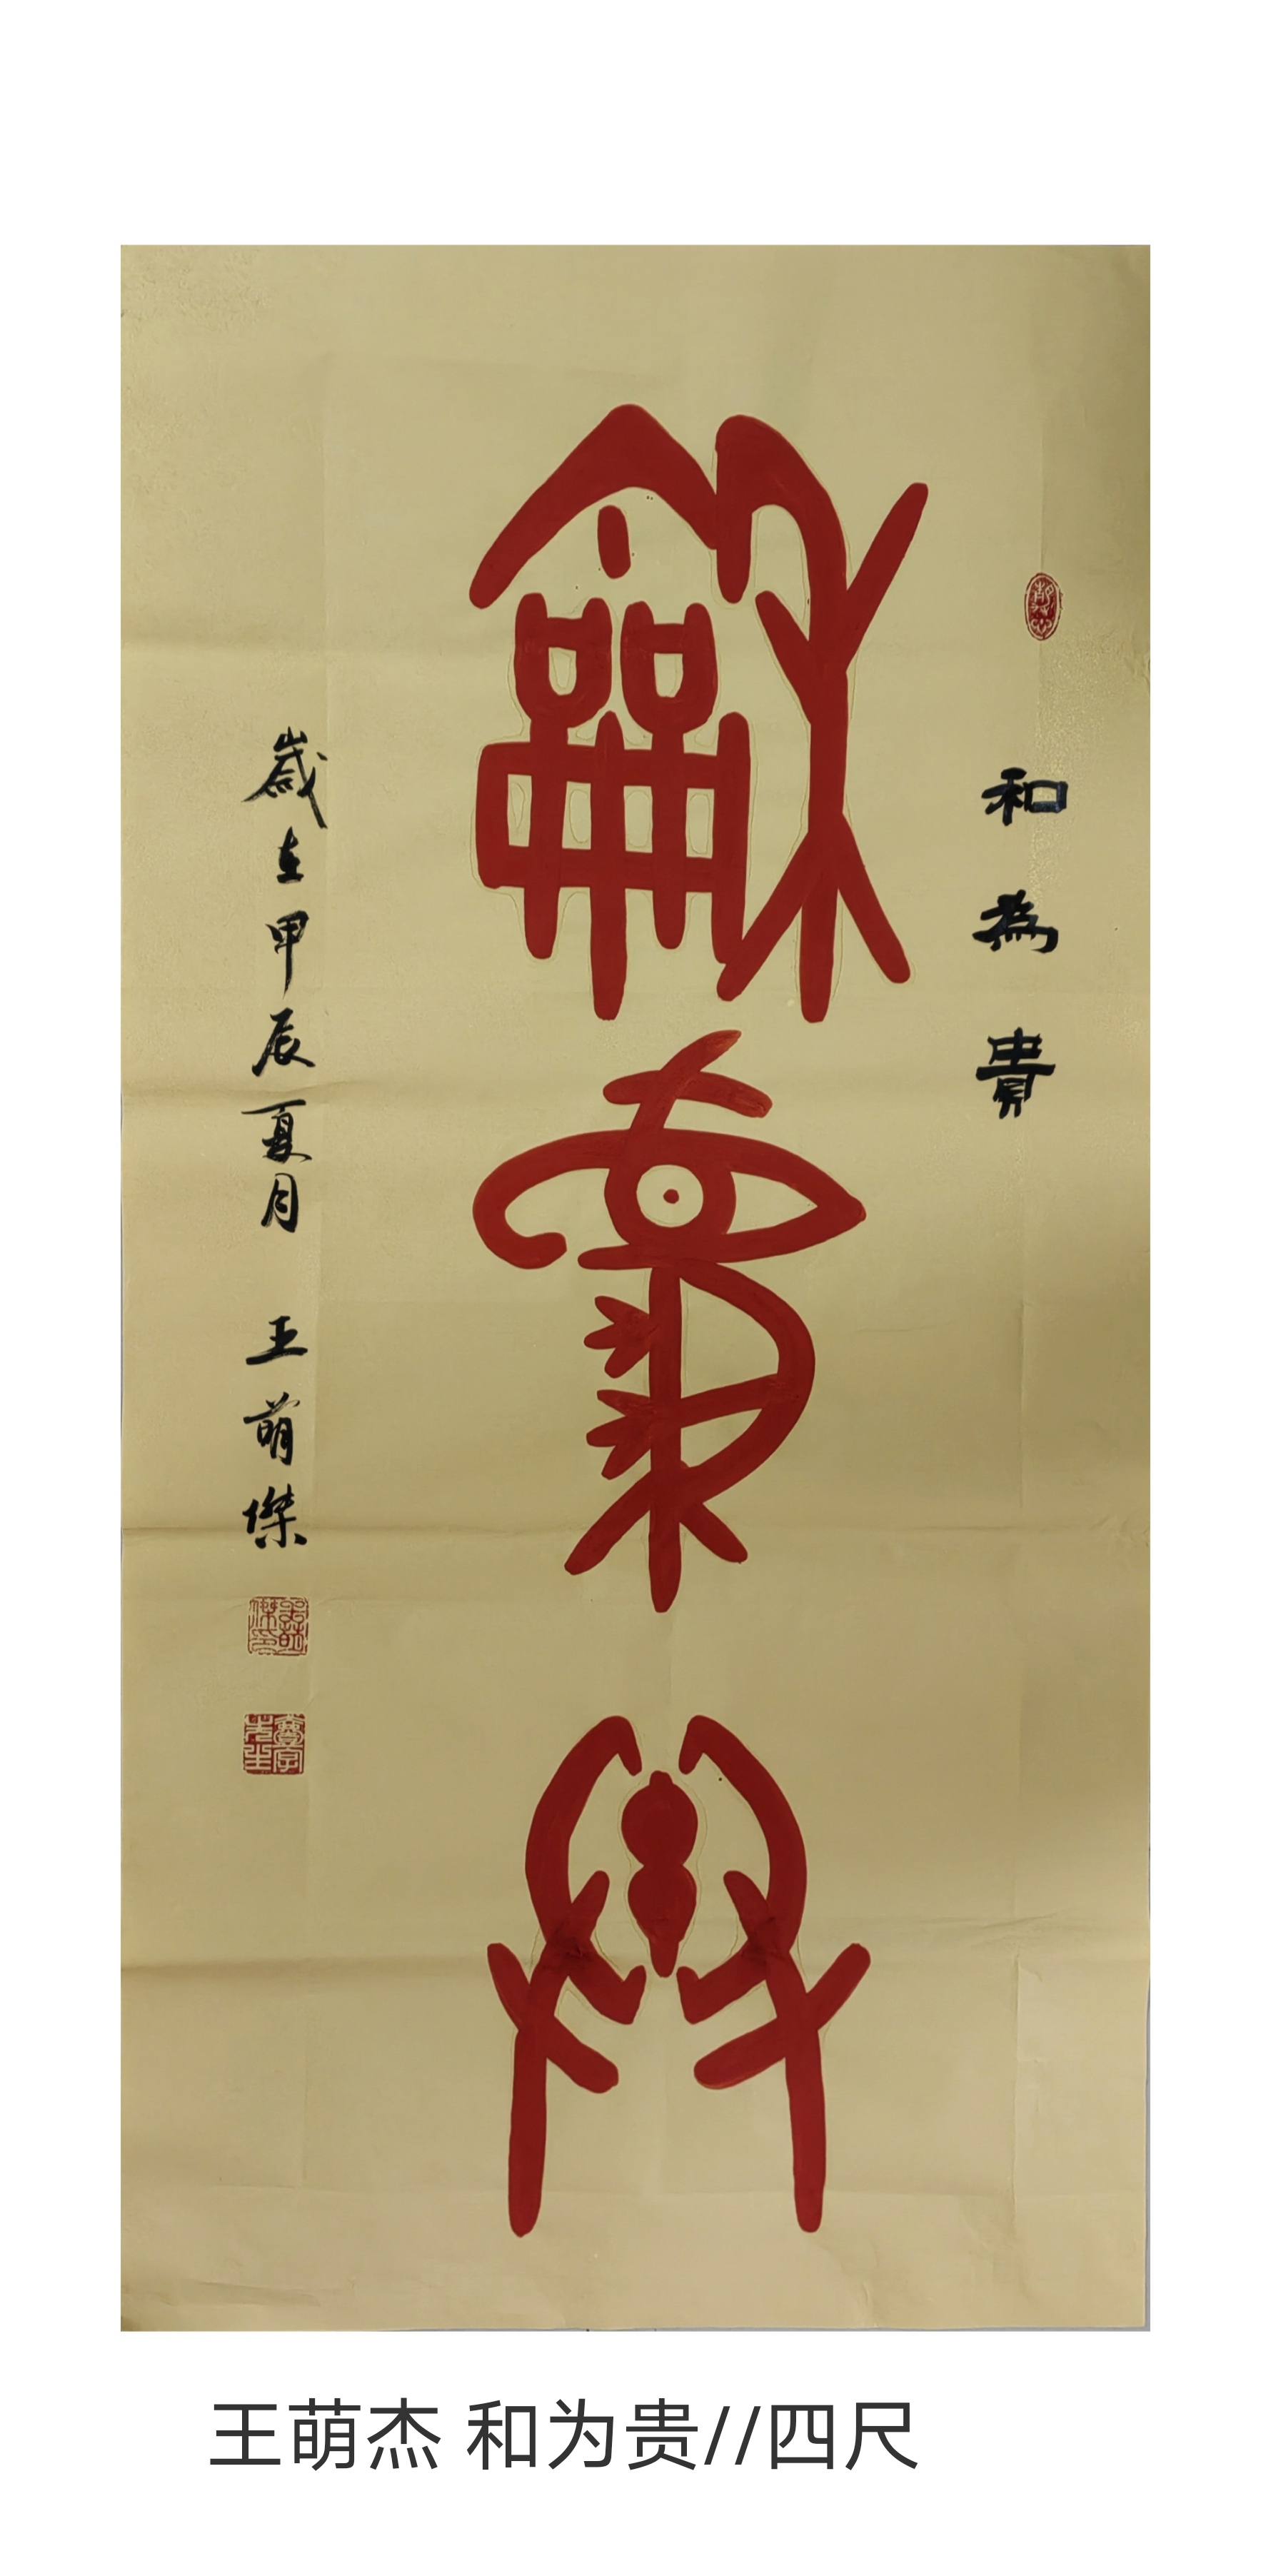 和為貴
龢為貴
歲在甲辰夏月 王萌傑
王萌杰 和为贵//四尺